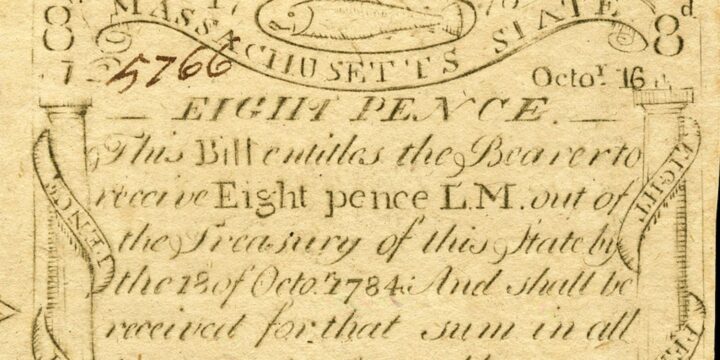 8d 17 78 8d
MASSACHUSETTS STATE
5766 Octor. 16
EIGHT PENCE.
This Bill entitles the Bearer to
receive Eight pence L.M. out of
the Treasury of this State by
the 18 of Octor. 1784. And shall be
received for that sum in all
PENCE
EIGHT